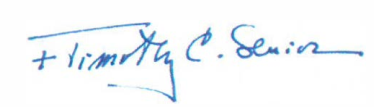 + Timothy C. Senior